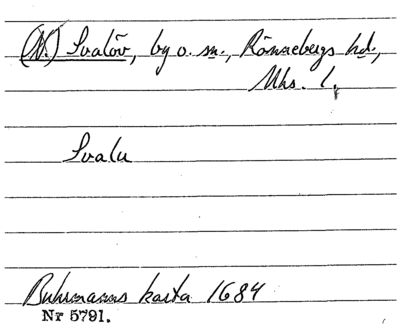 (N.) Svalöv, by o. sn., Rönnebergs hd,
Mhs. l.
Svalu
Buhrmanns karta 1684
Nr 5791.